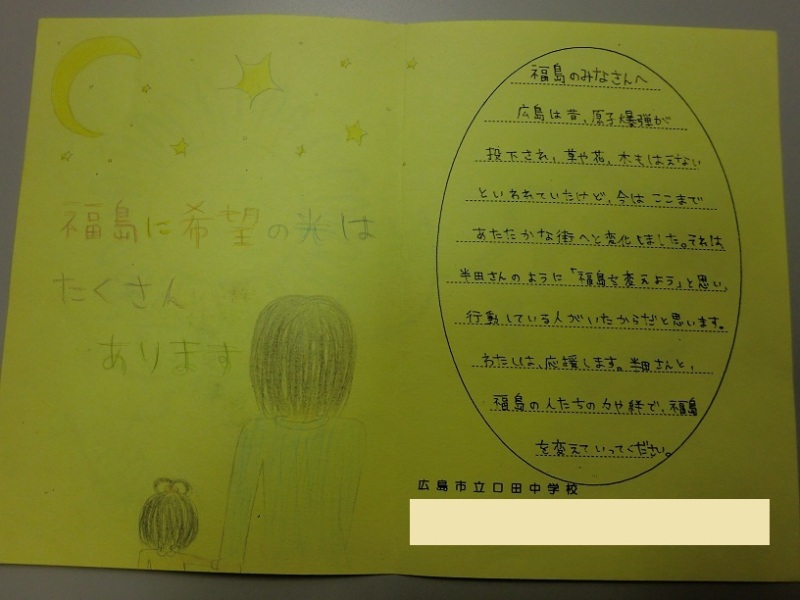 福島に希望の光は
たくさん
あります
福島のみなさんへ
広島は昔、原子爆弾が
投下され、草や花、木もはえない
といわれていたけど、今はここまで
あたたかな街へと変化しました。それは
半田さんのように「福島を変えよう」と思い、
行動している人がいたからだと思います。
わたしは、応援します。半田さんと、
福島の人たちの力や絆で、福島
を変えていってください。
広島市立口田中学校